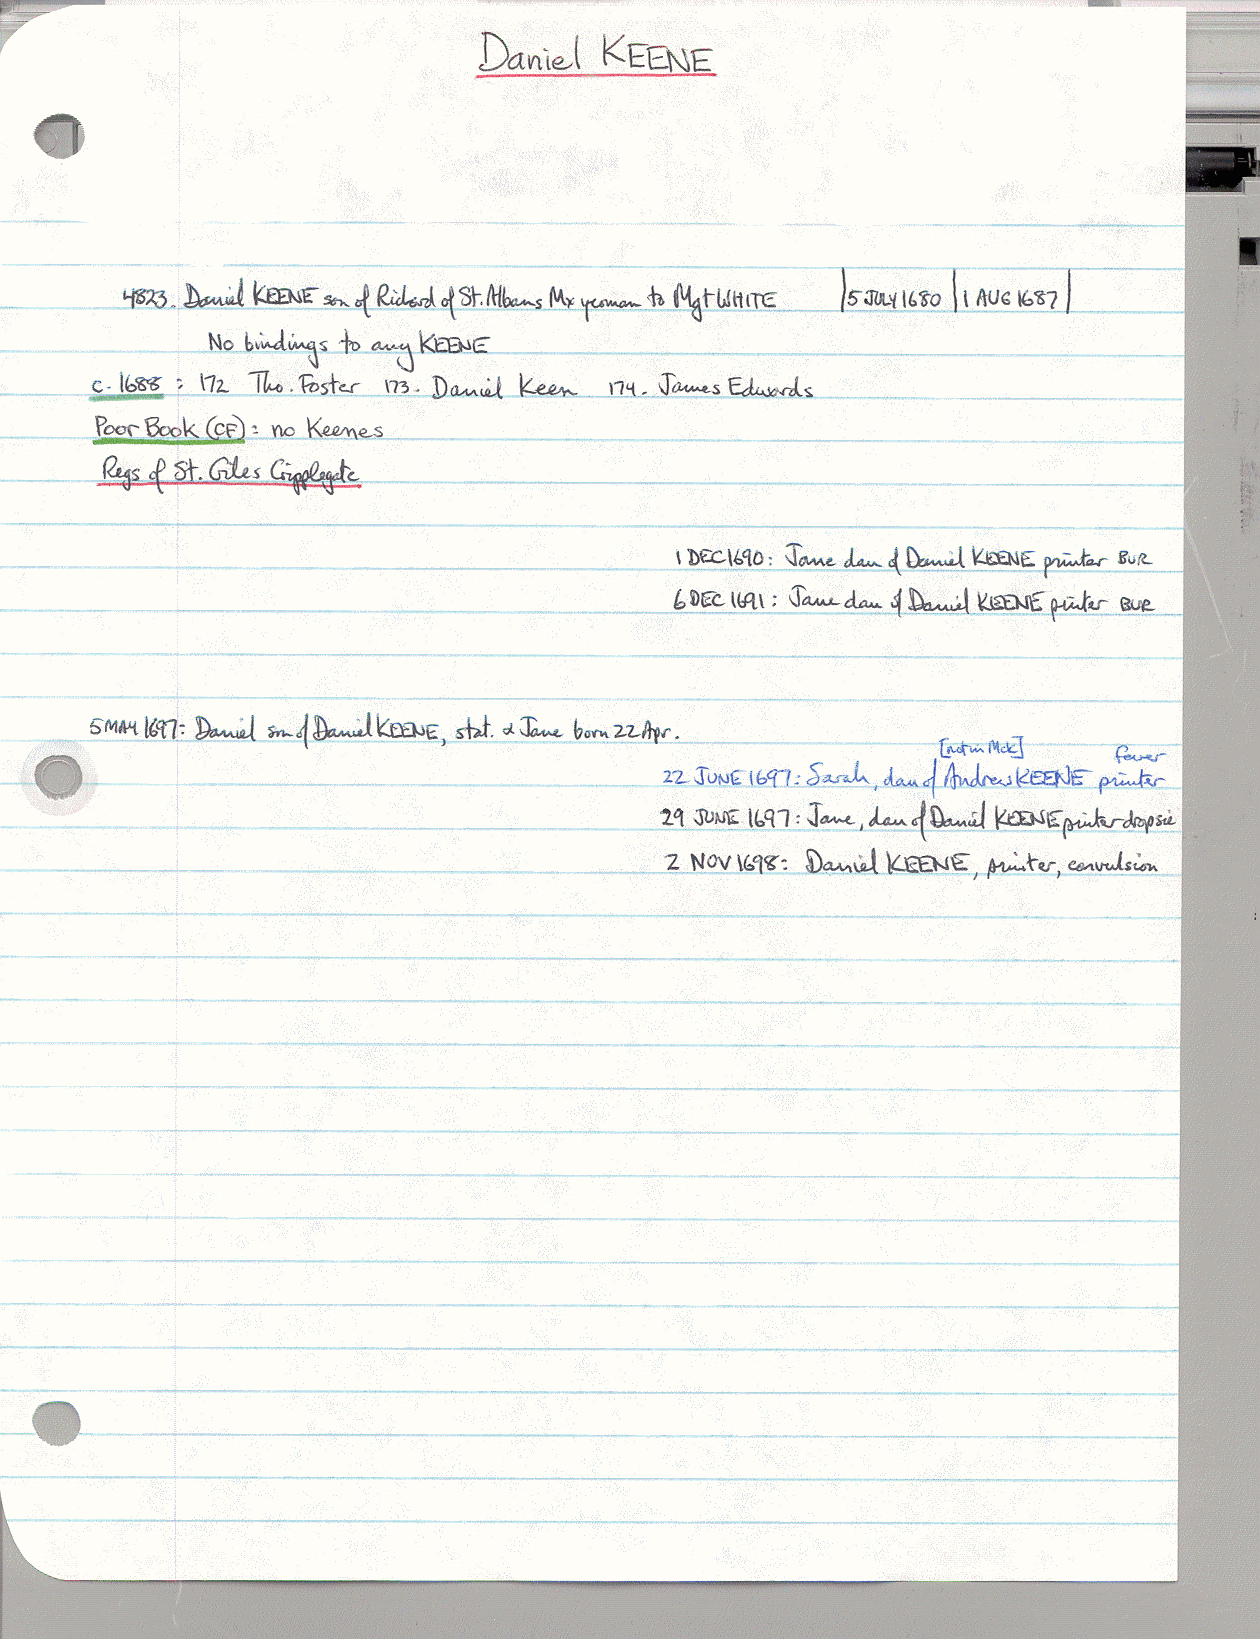 Daniel KEENE
4823. Daniel KEENE son of Richard of St. Albans Mx yeoman to Mgt WHITE | 5 JULY 1680 | 1 AUG 1687 |
No bindings to any KEENE
c. 1688 : 172 Tho. Foster 173. Daniel Keen 174. James Edwards
Poor Book (CF) : no Keenes
Regs of St. Giles Cripplegate
1 DEC 1690 : Jane dau of Daniel KEENE printer BUR
6 DEC 1691 : Jane dau of Daniel KEENE printer BUR
5 MAY 1697 : Daniel son of Daniel KEENE, stat. & Jane born 22 Apr.
[not in McK] fever
22 JUNE 1697 : Sarah, dau of Andrew KEENE printer
29 JUNE 1697 : Jane, dau of Daniel KEENE printer dropsie
2 NOV 1698 : Daniel KEENE, printer, convulsion